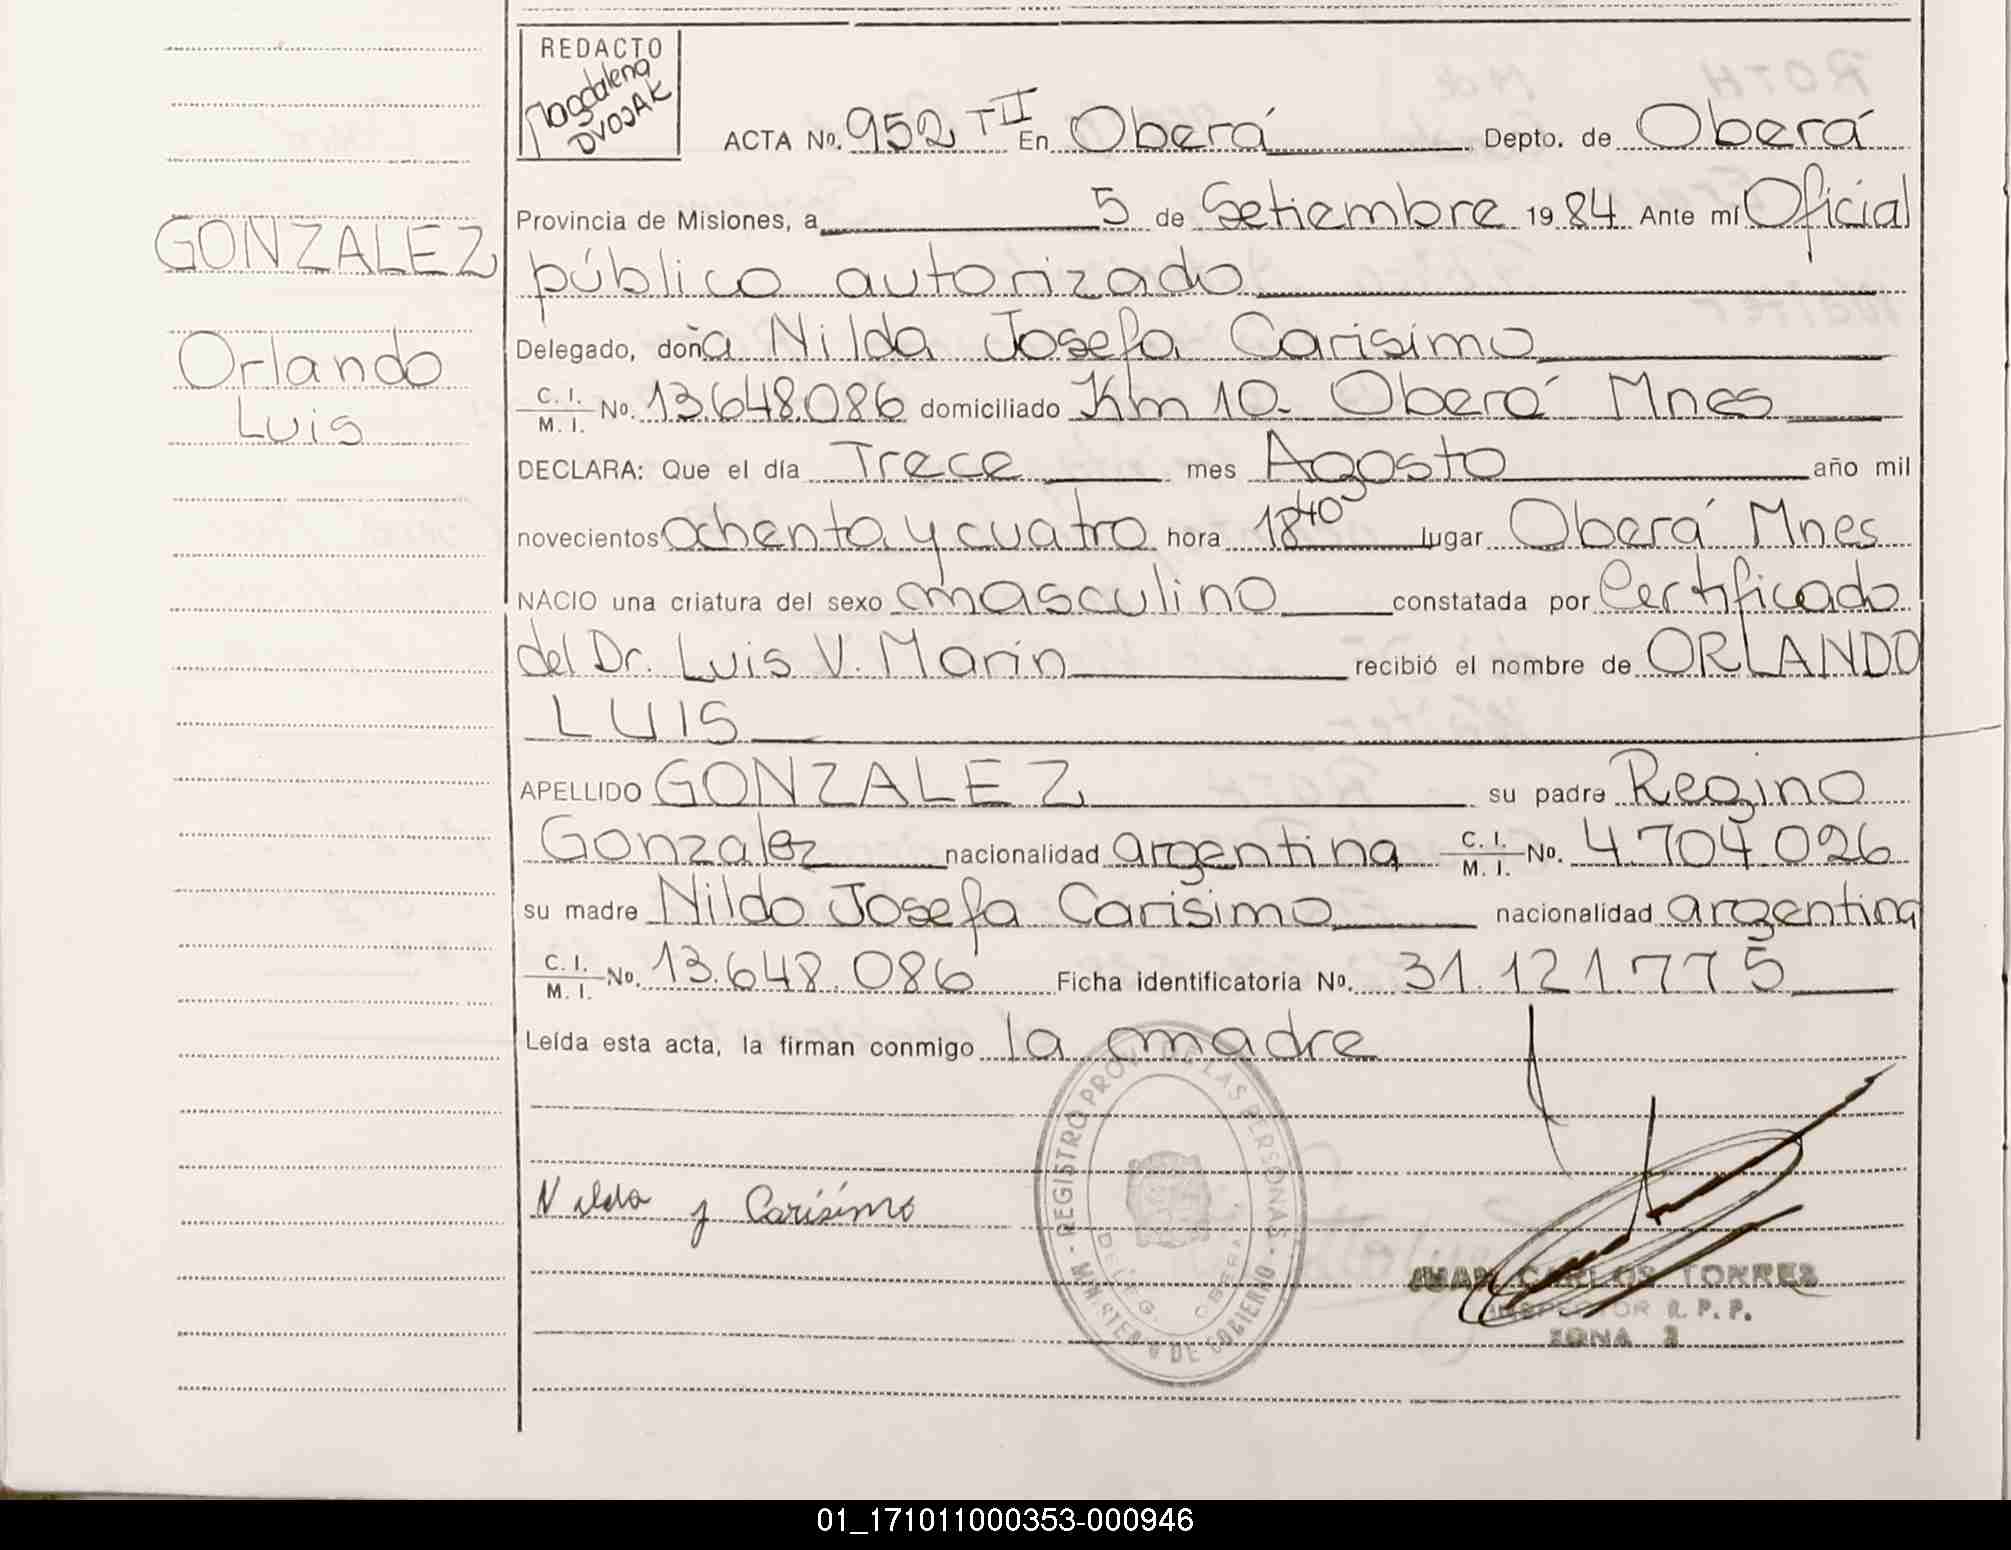 REDACTO
Magdalena
DVOJAK
ACTA No. 952 T II En Oberá Depto. de Oberá
Provincia de Misiones, a 5 de Setiembre 1984 Ante mí Oficial
público autorizado
Delegado, doña Nilda Josefa Carisimo
C. I.
M. I. No. 13.648.086 domiciliado Km 10. Oberá Mnes
DECLARA: Que el día Trece mes Agosto año mil
novecientos ochenta y cuatro hora 18 40 lugar Oberá Mnes
NACIO una criatura del sexo masculino constatada por Certificado
del Dr. Luis V. Marin recibió el nombre de ORLANDO
LUIS
APELLIDO GONZALEZ su padre Regino
Gonzalez nacionalidad argentina C. I. M. I. No. 4.704.026
su madre Nilda Josefa Carisimo nacionalidad argentina
C. I.
M. I. No. 13.648.086 Ficha identificatoria No. 31.121.775
Leída esta acta, la firman conmigo la madre
Nilda J Carísimo
GONZALEZ
Orlando
Luis
REGISTRO PROV. DE LAS PERSONAS
MINISTERIO DE GOBIERNO
DELEG. OBERA
JUAN CARLOS TORRES
INSPECTOR R. P. P.
ZONA 3
01_171011000353-000946